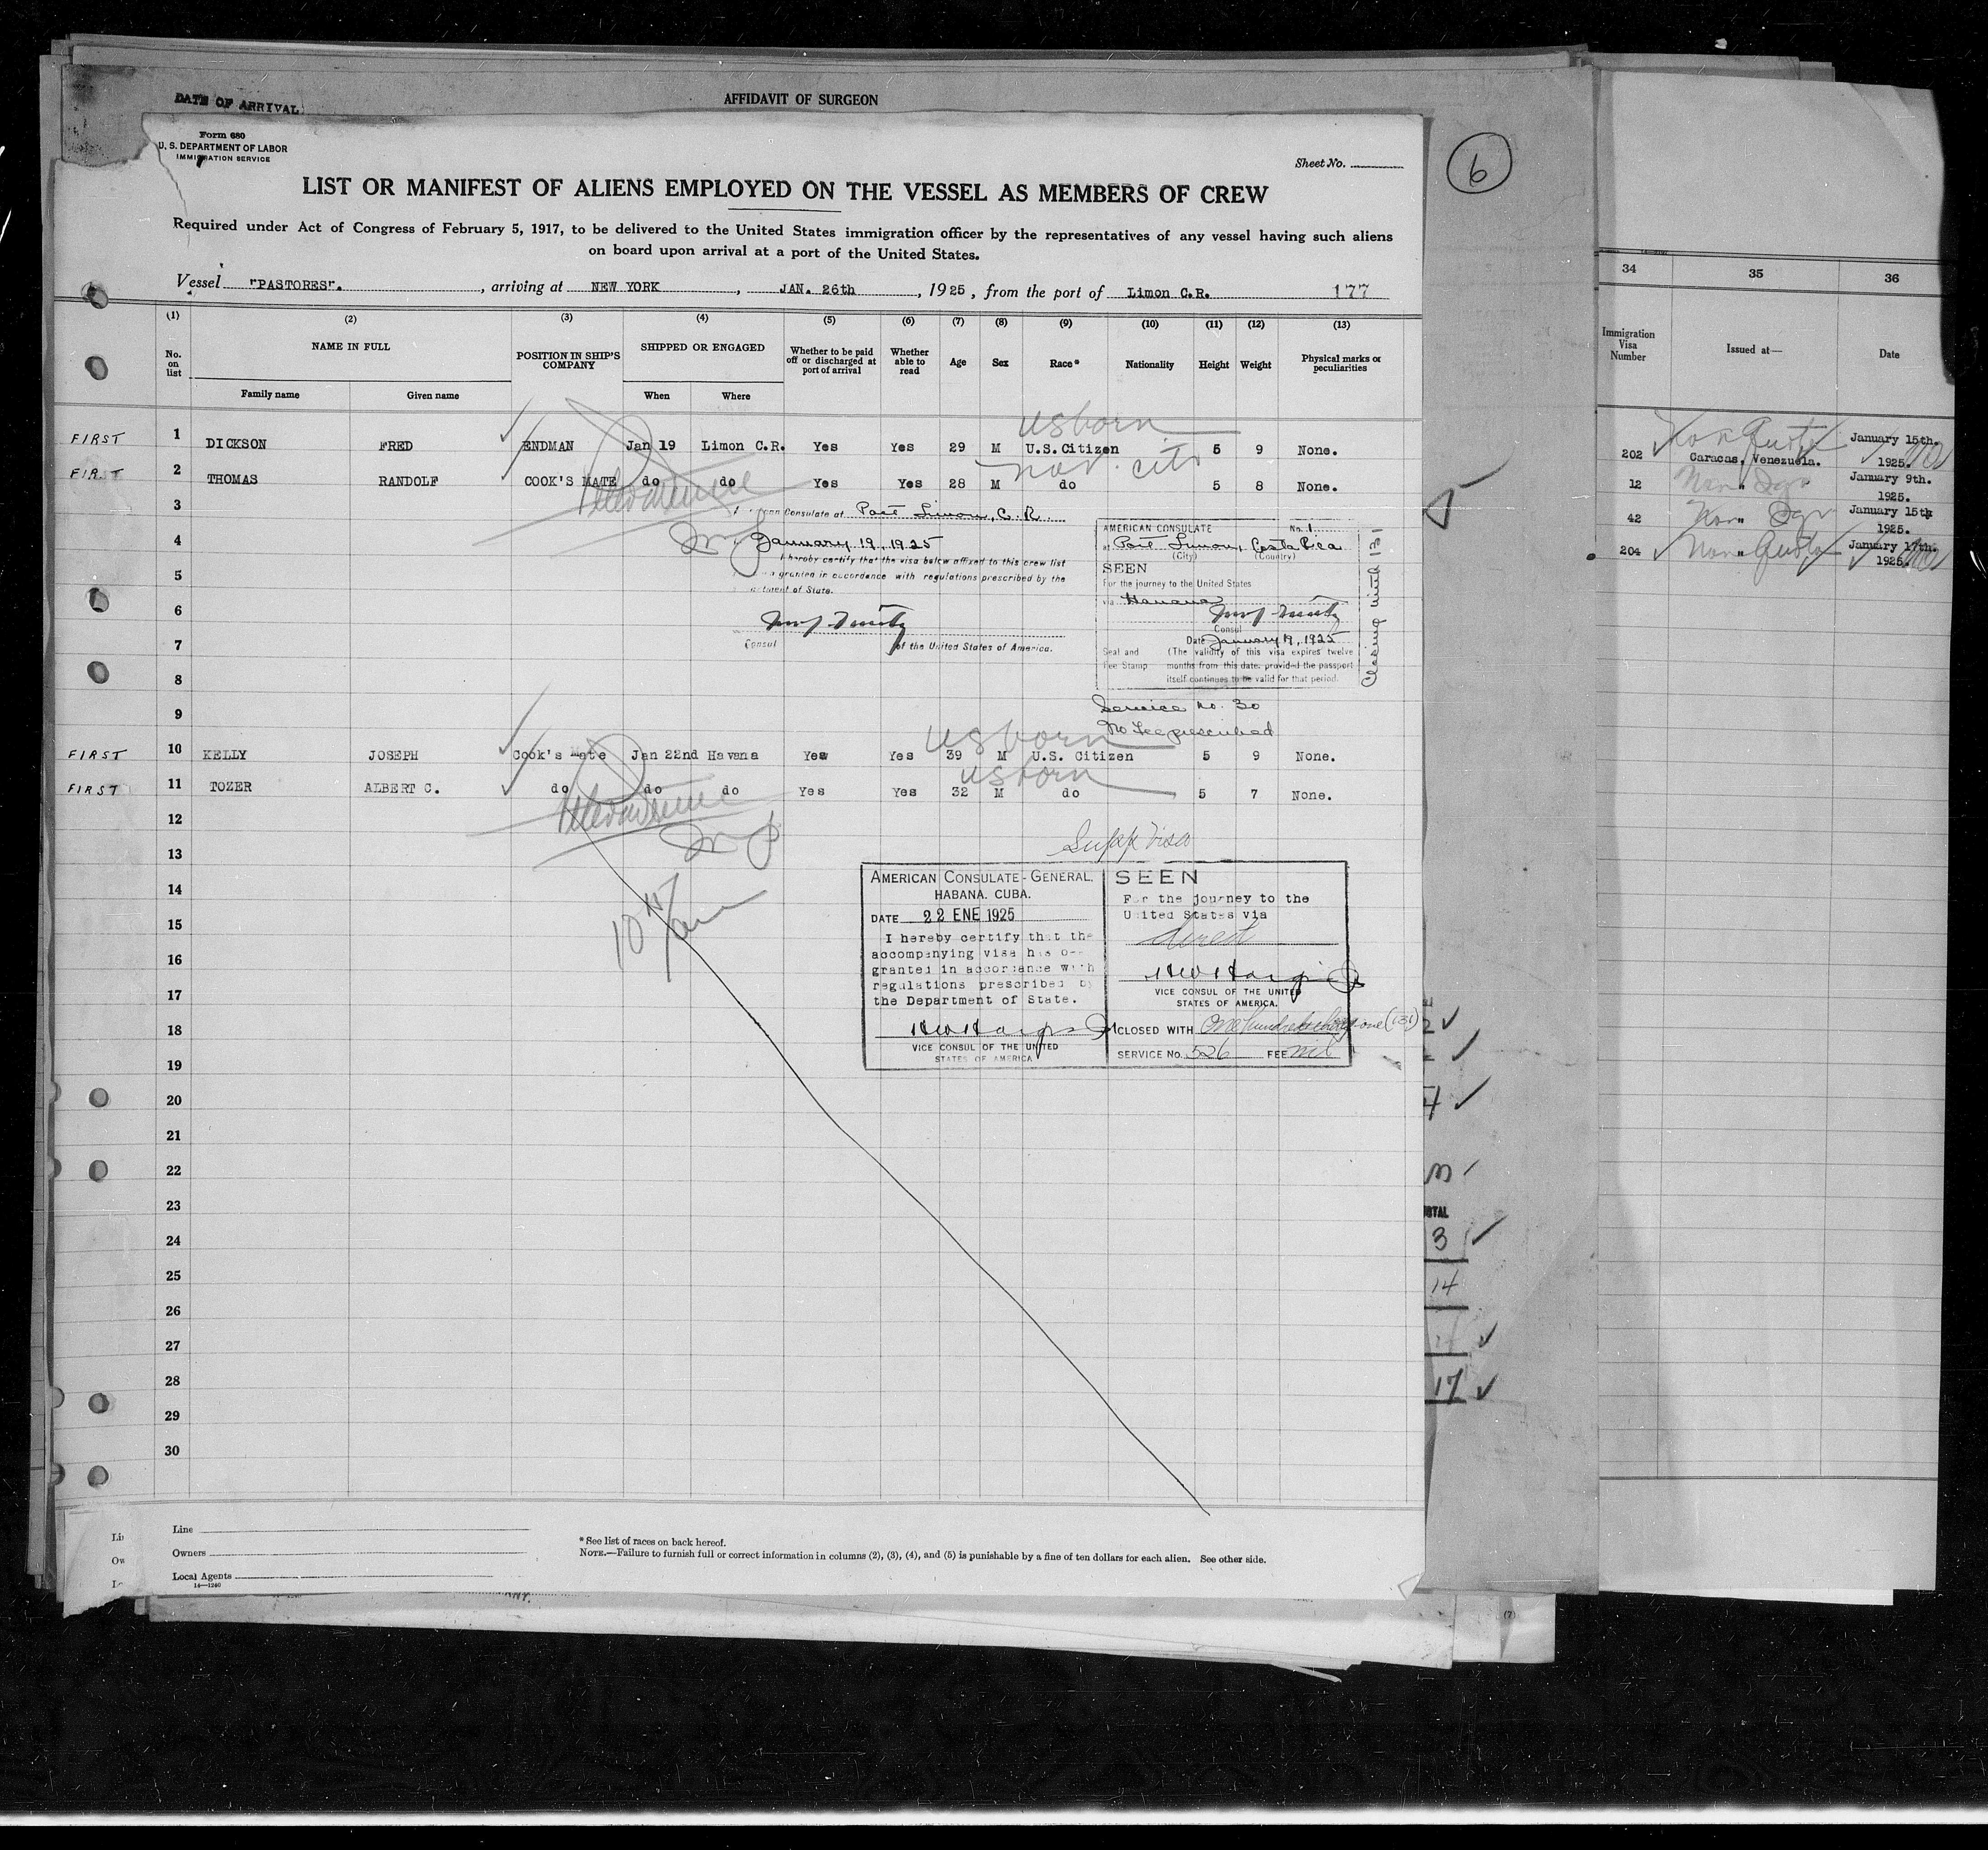 DATE OF ARRIVAL
AFFIDAVIT OF SURGEON
Form 680
U. S. DEPARTMENT OF LABOR
IMMIGRATION SERVICE
Sheet No.
6
LIST OR MANIFEST OF ALIENS EMPLOYED ON THE VESSEL AS MEMBERS OF CREW
Required under Act of Congress of February 5, 1917, to be delivered to the United States immigration officer by the representatives of any vessel having such aliens
on board upon arrival at a port of the United States.
Vessel "PASTORES". , arriving at NEW YORK , JAN. 26th , 1925 , from the port of Limon C.R. 177
(1) (2) (3) (4) (5) (6) (7) (8) (9) (10) (11) (12) (13)
No. on list NAME IN FULL POSITION IN SHIP'S COMPANY SHIPPED OR ENGAGED Whether to be paid off or discharged at port of arrival Whether able to read Age Sex Race* Nationality Height Weight Physical marks or peculiarities
Family name Given name When Where
us born
FIRST 1 DICKSON FRED ENDMAN Jan 19 Limon C.R. Yes Yes 29 M U.S.Citizen 5 9 None.
FIRST 2 THOMAS RANDOLF COOK'S MATE do do Yes Yes 28 M do 5 8 None.
3
Consulate at Port Limon, C.R.
4
January 19, 1925
I hereby certify that the visa below affixed to this crew list
granted in accordance with regulations prescribed by the
5
of State.
6
7
Consul of the United States of America.
8
AMERICAN CONSULATE No. 1
at Port Limon, Costa Rica
(City) (Country)
SEEN
For the journey to the United States
via Havana
Consul
Date January 19, 1925
Seal and Fee Stamp
(The validity of this visa expires twelve
months from this date, provided the passport
itself continues to be valid for that period.
Closing with 131
9
Service No. 30
No fee prescribed
us born
FIRST 10 KELLY JOSEPH Cook's Mate Jan 22nd Havana Yes Yes 39 M U.S. Citizen 5 9 None.
us born
FIRST 11 TOZER ALBERT C. do do do Yes Yes 32 M do 5 7 None.
12
13
Supp Visa
14
15
16
17
18
19
AMERICAN CONSULATE-GENERAL,
HABANA, CUBA.
DATE 22 ENE 1925
I hereby certify that the
accompanying visa has
granted in accordance with
regulations prescribed by
the Department of State.
VICE CONSUL OF THE UNITED
STATES OF AMERICA
SEEN
For the journey to the
United States via
direct
VICE CONSUL OF THE UNITED
STATES OF AMERICA.
CLOSED WITH One hundred thirty one (131)
SERVICE No. 526 FEE nil
20
21
22
23
24
25
26
27
28
29
30
Line
Owners
Local Agents
14—1240
*See list of races on back hereof.
NOTE.—Failure to furnish full or correct information in columns (2), (3), (4), and (5) is punishable by a fine of ten dollars for each alien. See other side.
3
14
17
(7)
34 35 36
Immigration Visa Number Issued at— Date
202 Non Quota Caracas, Venezuela. January 15th. 1925.
12 " January 9th. 1925.
42 " January 15th 1925.
204 Non " Quota January 17th. 1925.